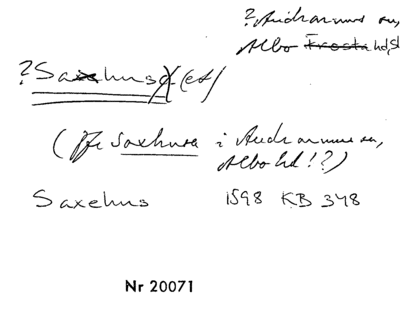 ? Andrarums sn,
Albo Frosta hd, Sk
? Saxehus (et)
(Jfr Saxhusa i Andrarums sn,
Albo hd!?)
Saxehus 1598 KB 348
Nr 20071